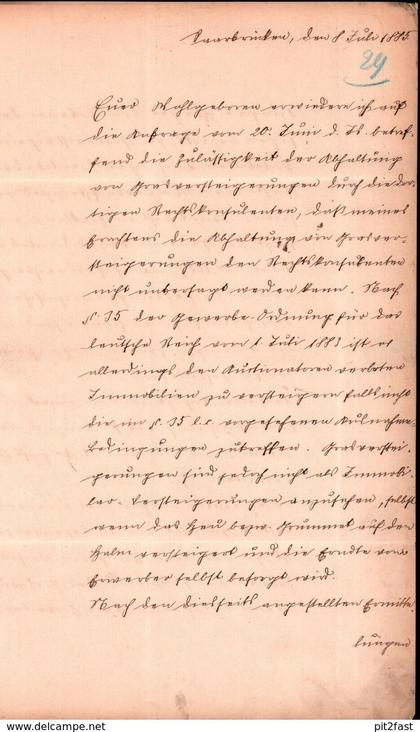 Saarbrücken, den 8 Juli 1885
29
Euer Wohlgeboren erwiedere ich auf
die Anfrage vom 20. Juni d. Js. betref-
fend die Zulässigkeit der Abhaltung
von Grasversteigerungen durch die dor-
tigen Rechtskonsulenten, daß meines
Erachtens die Abhaltung von Grasver-
steigerungen den Rechtskonsulenten
nicht untersagt werden kann. Nach
§. 35 der Gewerbe-Ordnung für das
deutsche Reich vom 1. Juli 1883 ist es
allerdings den Auctionatoren verboten
Immobilien zu versteigern falls nicht
die im §. 35 l.c. vorgesehenen Ausnahme-
bedingungen zutreffen. Grasverstei-
gerungen sind jedoch nicht als Immobi-
lar-Versteigerungen anzusehen, selbst
wenn das Heu bezw. Grummet auf dem
Halm versteigert und die Erndte vom
Erwerber selbst besorgt wird.
Nach den diesseits angestellten Ermitte
lungen
pit2fast